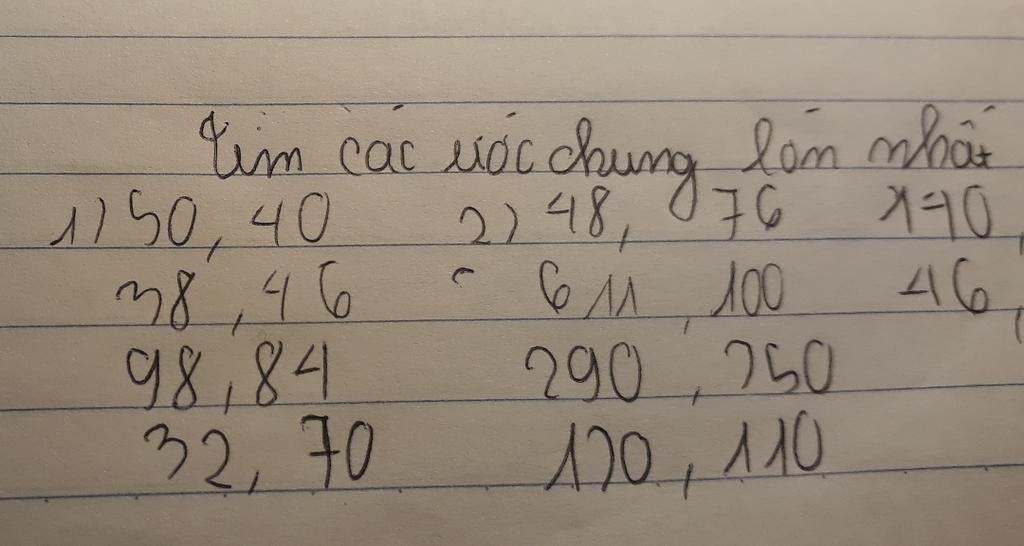 Tìm các ước chung lớn nhất
1) 50, 40 2) 48, 76
38, 46 611, 100 46,
98, 84 290, 250
32, 70 120, 110